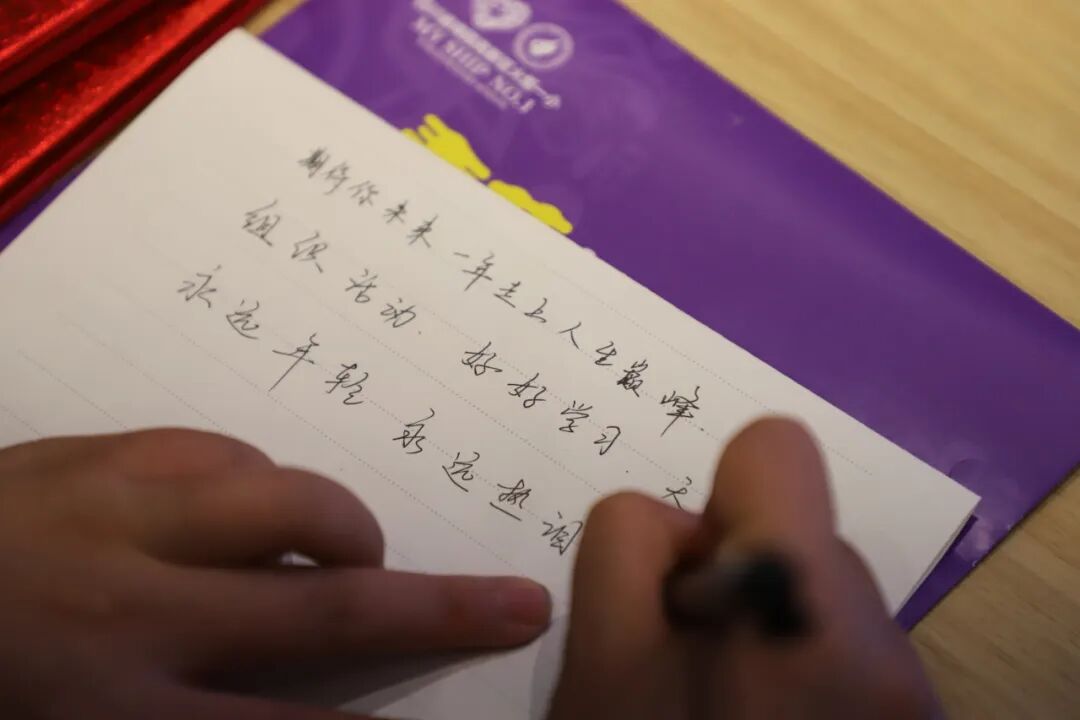 MY SHIP NO.1
期待你未来一年走上人生巅峰.
组织活动. 好好学习. 天
永远年轻 永远热泪